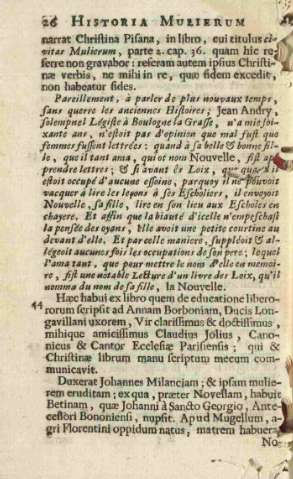 26 HISTORIA MULIERUM
narrat Christina Pisana, in libro, cui titulus ci-
vitas Mulierum, parte 2. cap. 36. quam hîc re-
ferre non gravabor: referam autem ipsius Christi-
næ verbis, ne mihi in re, quæ fidem excedit,
non habeatur fides.
Pareillement, à parler de plus nouvaux temps,
sans querre les anciennes Histoires; Jean Andry,
solempnel Légiste à Boulogne la Grasse, n'a mie soi-
xante ans, n'estoit pas d'opinion que mal fust que
femmes fussent lettrées: quand à sa belle & bonne fil-
le, que il tant ama, qui ot nom Nouvelle, fist ap-
prendre lettres; & si avant ès Loix, que quand il
estoit occupé d'aucune essoine, parquoy il ne pouvoit
vacquer à lire les leçons à ses Escholiers, il envoyoit
Nouvelle, sa fille, lire en son lieu aux Escholes en
chayere. Et affin que la biauté d'icelle n'empeschast
la pensée des oyans, Elle avoit une petite courtine au
devant d'elle. Et par celle maniere, suppléoit & al-
légeoit aucunes fois les occupations de son pere; lequel
l'ama tant, que pour mettre le nom d'elle en memoi-
re, fist une notable Lecture d'un livre des Loix, qu'il
nomma du nom de sa fille, la Nouvelle.
44 Hæc habui ex libro quem de educatione libero-
rorum scripsit ad Annam Borboniam, Ducis Lon-
gavillani uxorem, Vir clarissimus & doctissimus,
mihique amicissimus Claudius Jolius, Cano-
nicus & Cantor Ecclesiæ Parisiensis; qui &
Christinæ librum manu scriptum mecum com-
municavit.
Duxerat Johannes Milanciam; & ipsam mulie-
rem eruditam; ex qua, præter Novellam, habuit
Betinam, quæ Johanni à Sancto Georgio, Ante-
cessori Bononiensi, nupsit. Apud Mugellum, a-
gri Florentini oppidum natus, matrem habuerat
No-